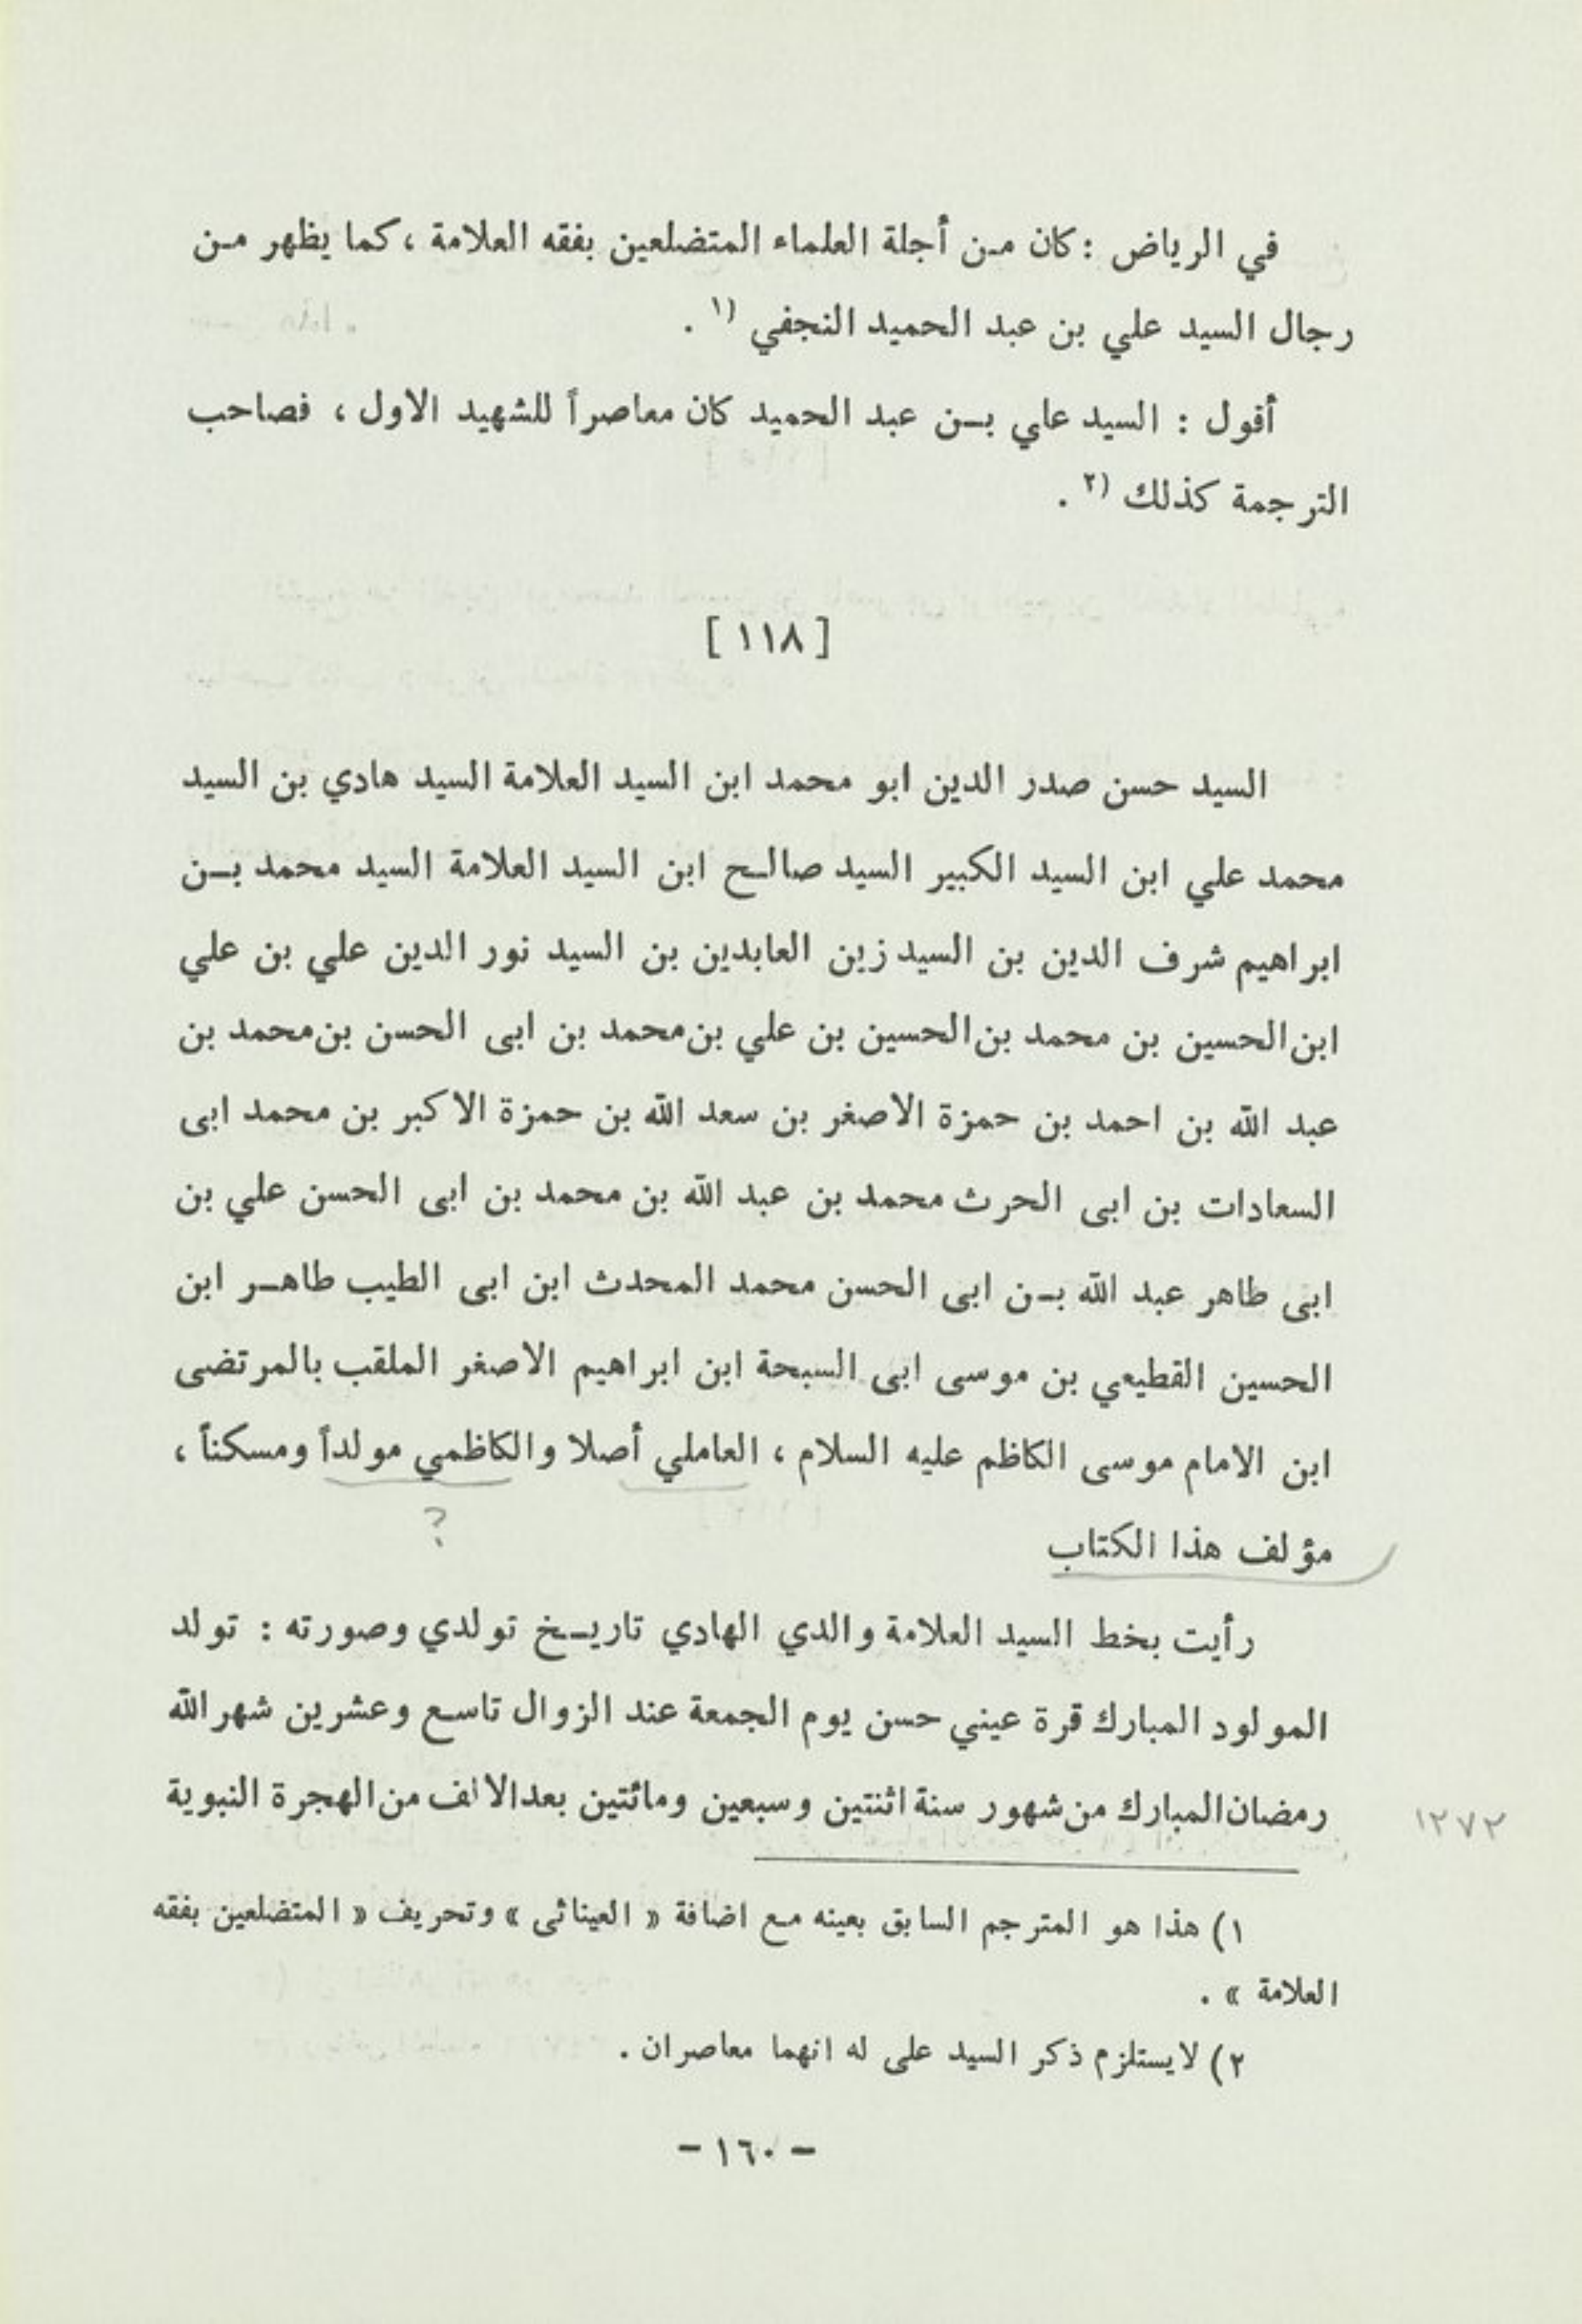 في الرياض : كان من أجلة العلماء المتضلعين بفقه العلامة ، كما يظهر من
رجال السيد علي بن عبد الحميد النجفي ١) .
أقول : السيد علي بن عبد الحميد كان معاصراً للشهيد الاول ، فصاحب
الترجمة كذلك ٢) .
[ ١١٨ ]
السيد حسن صدر الدين ابو محمد ابن السيد العلامة السيد هادي بن السيد
محمد علي ابن السيد الكبير السيد صالح ابن السيد العلامة السيد محمد بن
ابراهيم شرف الدين بن السيد زين العابدين بن السيد نور الدين علي بن علي
ابن الحسين بن محمد بن الحسين بن علي بن محمد بن ابى الحسن بن محمد بن
عبد الله بن احمد بن حمزة الاصغر بن سعد الله بن حمزة الاكبر بن محمد ابى
السعادات بن ابى الحرث محمد بن عبد الله بن محمد بن ابى الحسن علي بن
ابى طاهر عبد الله بن ابى الحسن محمد المحدث ابن ابى الطيب طاهر ابن
الحسين القطيعي بن موسى ابى السبحة ابن ابراهيم الاصغر الملقب بالمرتضى
ابن الامام موسى الكاظم عليه السلام ، العاملي أصلا والكاظمي مولداً ومسكناً ،
؟
مؤلف هذا الكتاب
رأيت بخط السيد العلامة والدي الهادي تاريخ تولدي وصورته : تولد
المولود المبارك قرة عيني حسن يوم الجمعة عند الزوال تاسع وعشرين شهر الله
رمضان المبارك من شهور سنة اثنتين وسبعين ومائتين بعد الالف من الهجرة النبوية
١٢٧٢
١) هذا هو المترجم السابق بعينه مع اضافة « العيناثى » وتحريف « المتضلعين بفقه
العلامة » .
٢) لايستلزم ذكر السيد على له انهما معاصران .
- ١٦٠ -